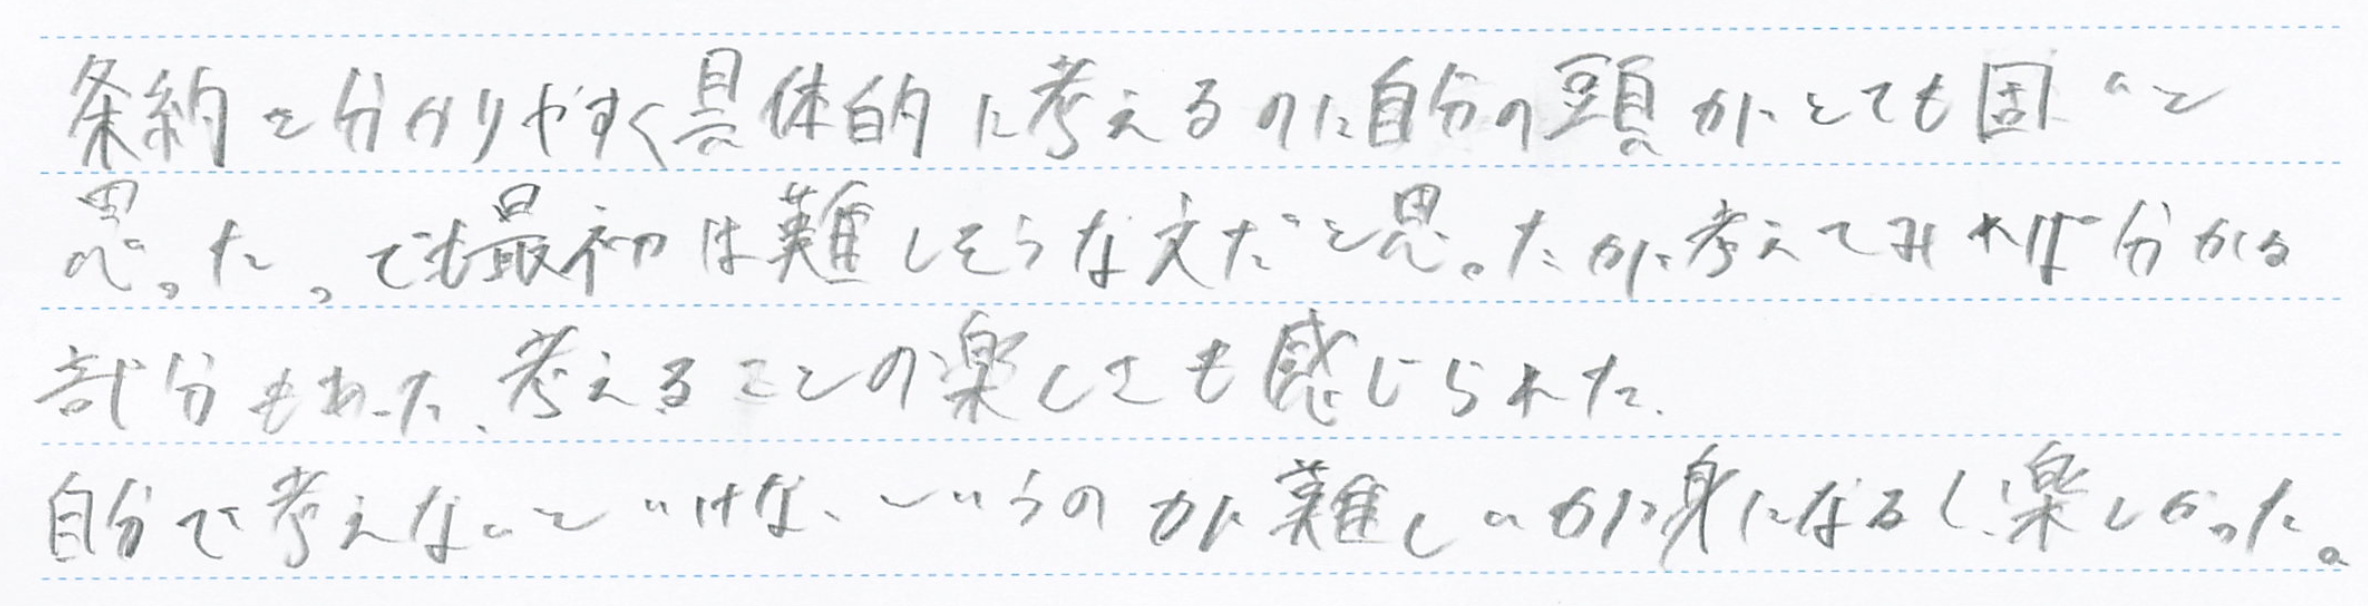 条約を分かりやすく具体的に考えるのに自分の頭がとても固いと
思った。でも最初は難しそうな文だと思ったが考えてみれば分かる
部分もあった、考えることの楽しさも感じられた.
自分で考えないといけないというのが難しいが身になるし、楽しかった。